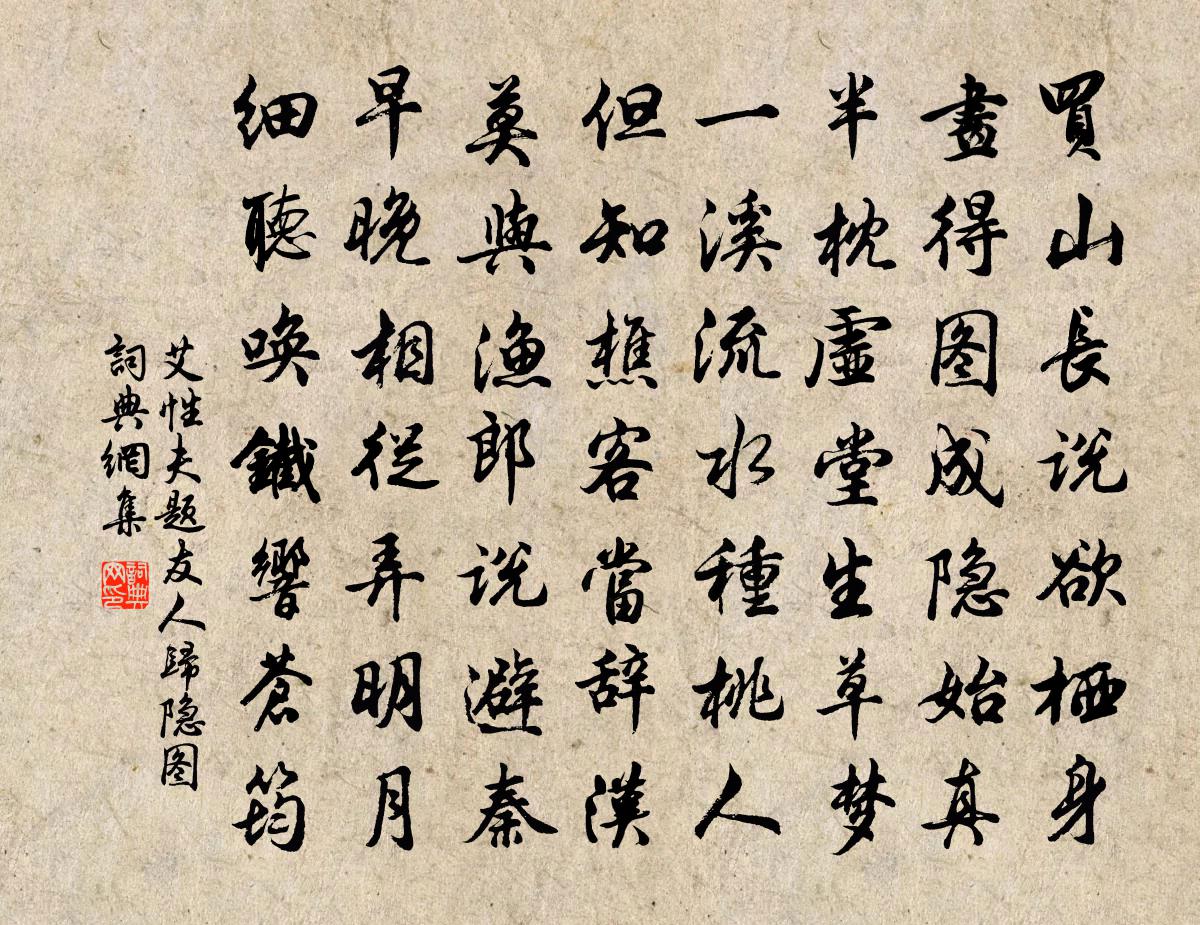 買山長说欲栖身
畫得图成隐始真
半枕虛堂生草梦
一溪流水種桃人
但知樵客當辞漢
莫與漁郎说避秦
早晚相從弄明月
細聴唤鐵響蒼筠
艾性夫题友人歸隐图
詞典網集
詞典网印